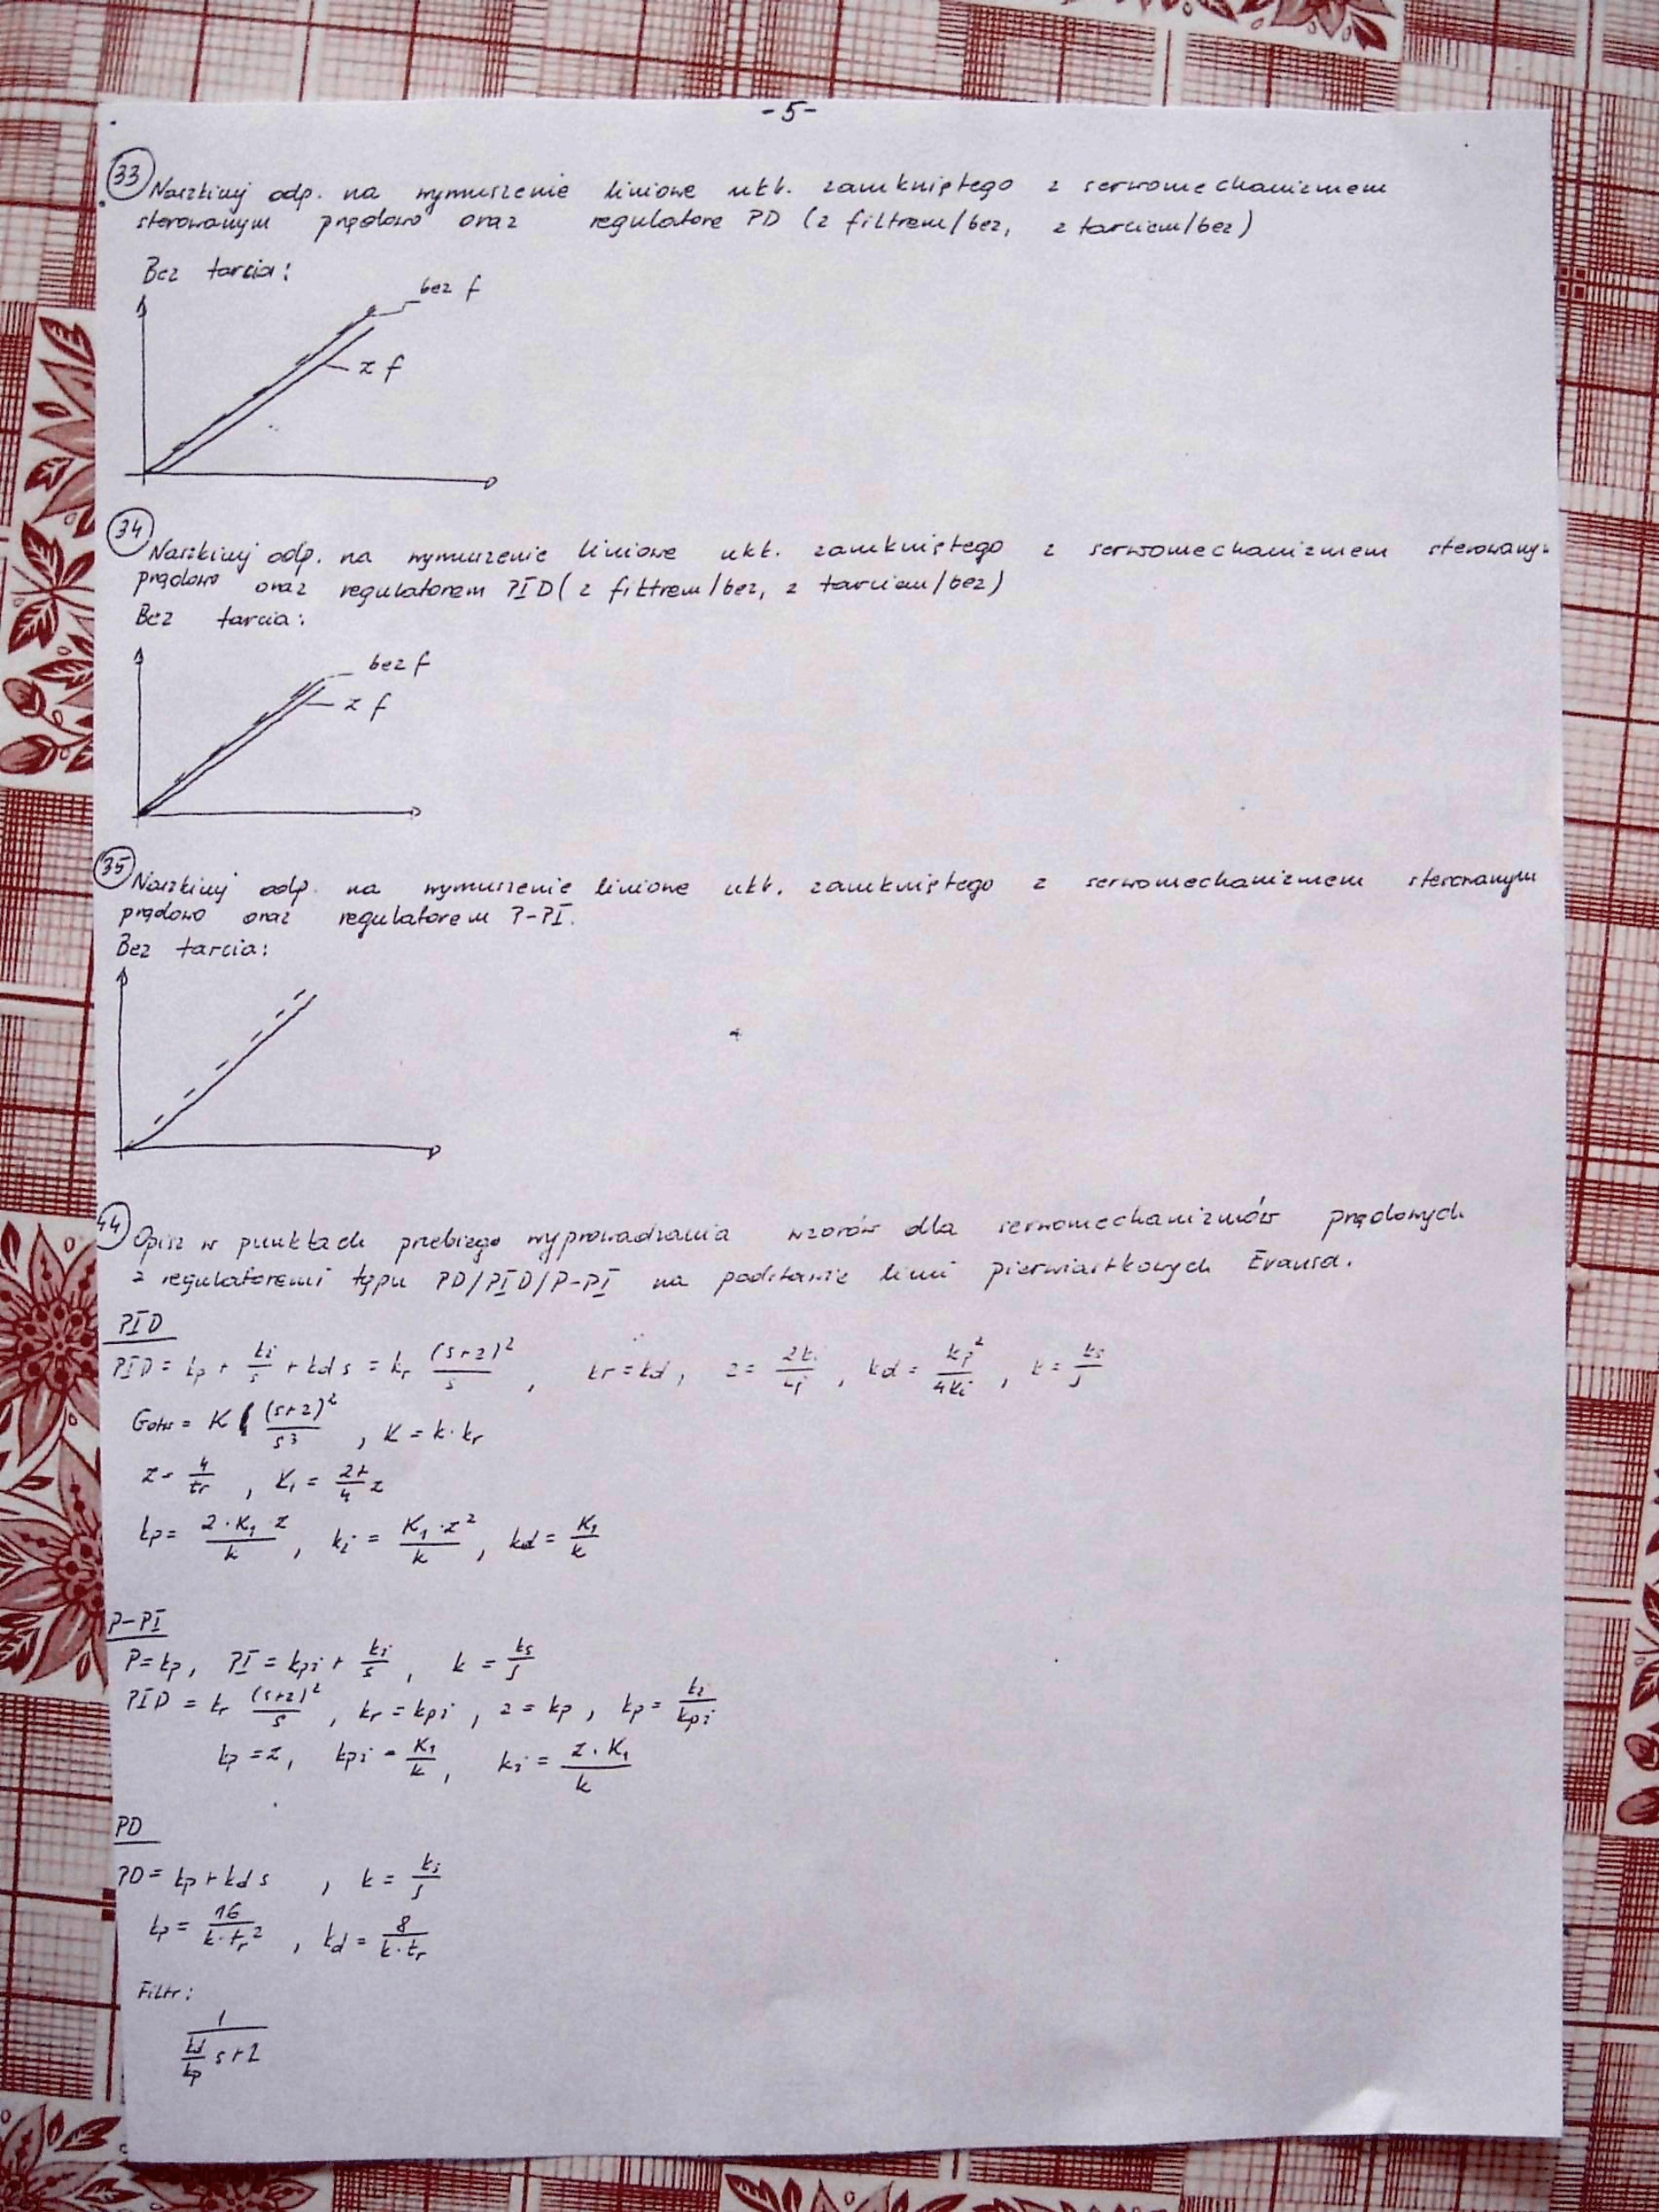 -5-
33 Naszkicuj odp. na wymuszenie liniowe ukł. zamkniętego z serwomechanizmem
sterowanym prądowo oraz regulatore PD (z filtrem/bez, z tarciem/bez)
Bez tarcia:
bez f
z f
34 Naszkicuj odp. na wymuszenie liniowe ukł. zamkniętego z serwomechanizmem sterowanym
prądowo oraz regulatorem PID (z filtrem/bez, z tarciem/bez)
Bez tarcia:
bez f
z f
35 Naszkicuj odp. na wymuszenie liniowe ukł. zamkniętego z serwomechanizmem sterowanym
prądowo oraz regulatorem P-PI.
Bez tarcia:
44 Opisz w punktach przebiego wyprowadzania wzorów dla serwomechanizmów prądowych
z regulatoremi typu PD/PID/P-PI na podstawie linii pierwiastkowych Evansa.
PID
PID = kp + ki/s + kd s = kr (s+z)²/s , kr = kd, z = 2ki/kp , kd = kp²/4ki , k = ks/J
Gotw = K (s+z)²/s³ , K = k·kr
z = 4/tr , K1 = 27/4 z
kp = 2·K1·z/k , ki = K1·z²/k , kd = K1/k
P-PI
P = kp, PI = kpi + ki/s , k = ks/J
PID = kr (s+z)²/s , kr = kpi , z = kp , kp = ki/kpi
kp = z, kpi = K1/k , ki = z·K1/k
PD
PD = kp + kd s , k = ks/J
kp = 16/k·tr² , kd = 8/k·tr
Filtr:
1/(kd/kp s+1)